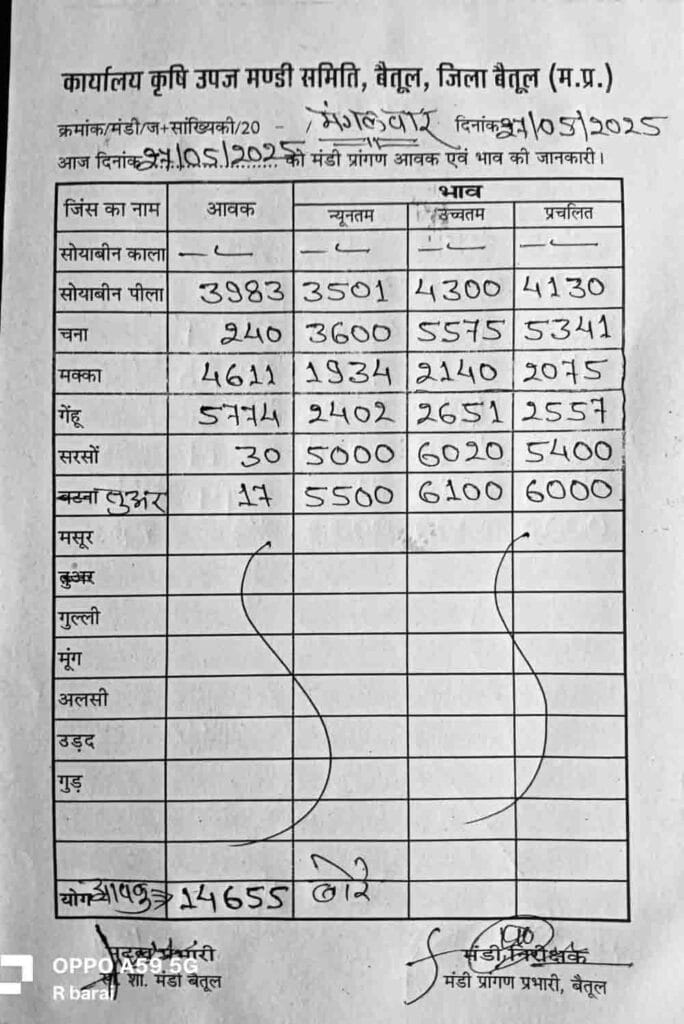 कार्यालय कृषि उपज मण्डी समिति, बैतूल, जिला बैतूल (म.प्र.)
क्रमांक/मंडी/ज+सांख्यिकी/20 - / मंगलवार दिनांक 27/05/2025
आज दिनांक 27/05/2025 की मंडी प्रांगण आवक एवं भाव की जानकारी।
भाव
जिंस का नाम आवक न्यूनतम उच्चतम प्रचलित
सोयाबीन काला
सोयाबीन पीला 3983 3501 4300 4130
चना 240 3600 5575 5341
मक्का 4611 1934 2140 2075
गेंहू 5774 2402 2651 2557
सरसों 30 5000 6020 5400
बटना तुअर 17 5500 6100 6000
मसूर
तुअर
गुल्ली
मूंग
अलसी
उड़द
गुड़
योग आवक 14655 बोरे
प्रभारी मंडी निरीक्षक
शा. मंडी बैतूल मंडी प्रांगण प्रभारी, बैतूल
OPPO A59 5G
R barai